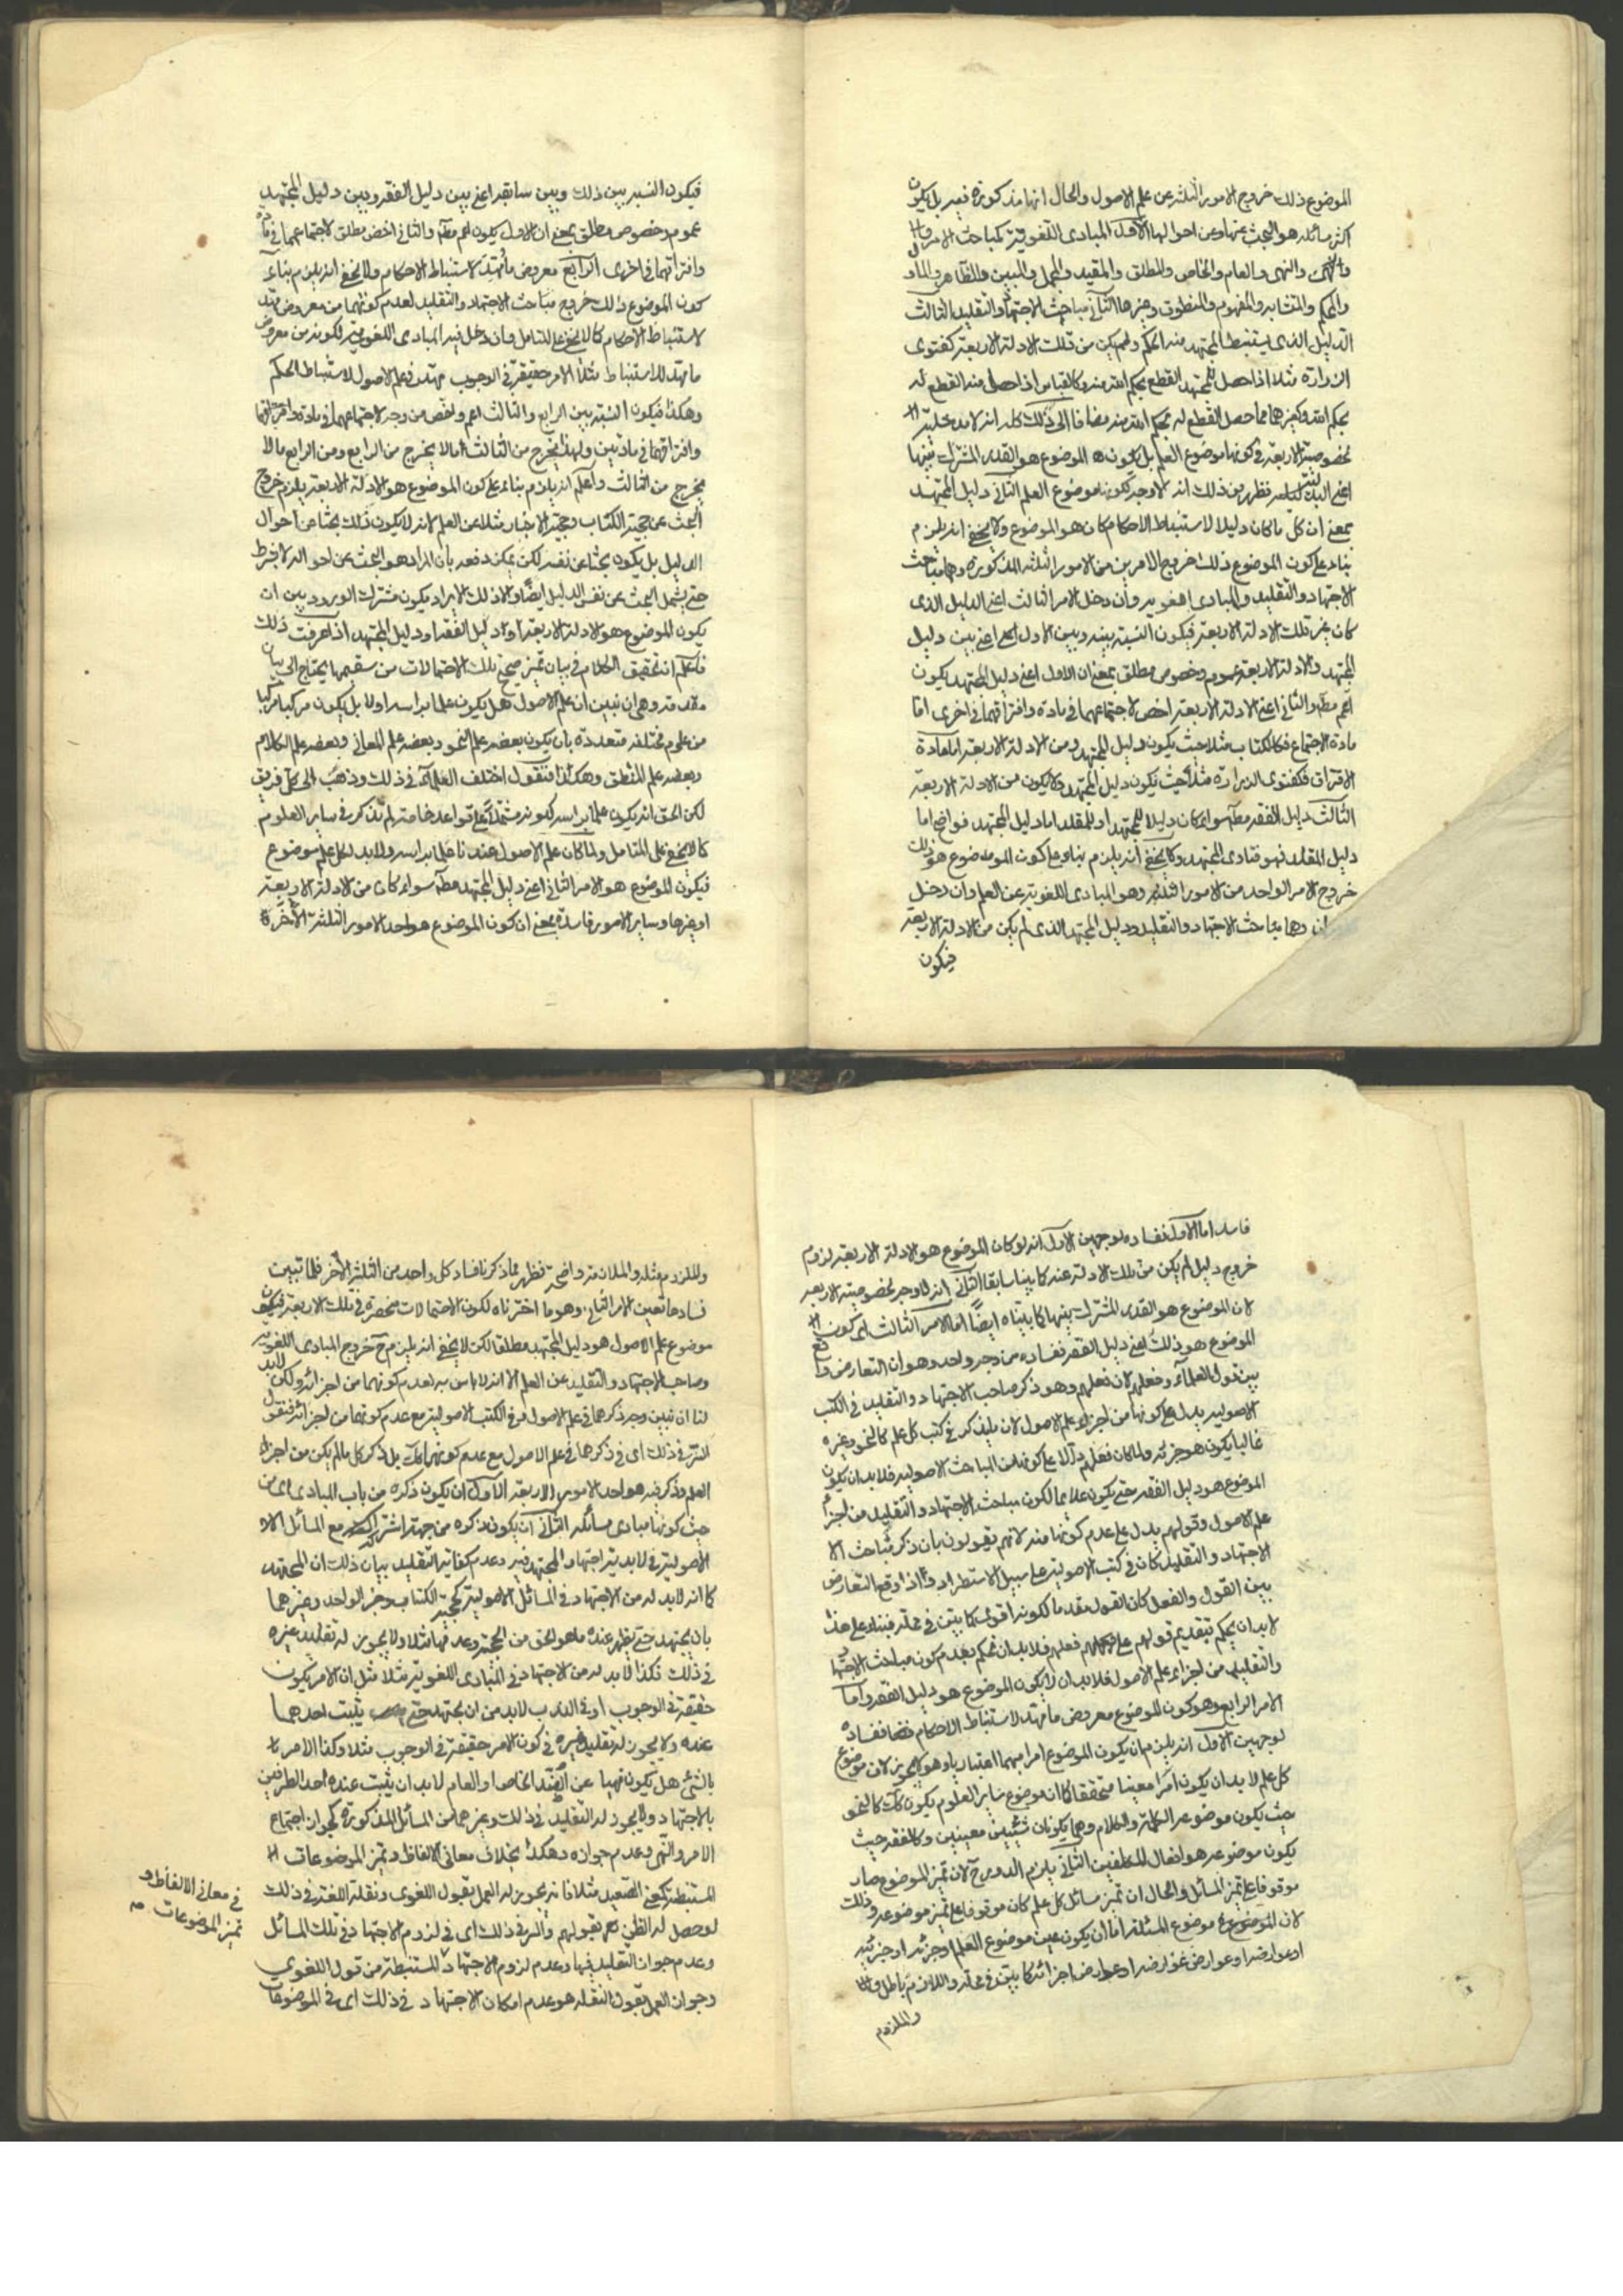 الموضوع ذلك خروج الامور الثلثة عن علم الاصول والحال انها مذكورة فيه بل يكون
اكثر مسائله هو البحث عنها وعن احوالها الاول المبادى اللغوية كمباحث الامر
والنهى والعام والخاص والمطلق والمقيد والمجمل والمبين والظاهر والماول
والمحكم والمتشابه والمفهوم والمنطوق وغيرها الثانى مباحث الاجتهاد والتقليد الثالث
الدليل الذى يستنبط المجتهد منه الحكم ولم يكن من تلك الادلة الاربعة كفتوى
الزرارة مثلا اذا حصل للمجتهد القطع بحكم الله منه وكالقياس اذا حصل منه القطع له
بحكم الله وكغيرهما مما حصل القطع له بحكم الله منه مضافا الى ذلك كله انه لا مدخلية
لخصوصية الاربعة فى كونها موضوع العلم بل يكون الموضوع هو القدر المشترك بينها
فظهر من ذلك انه لا وجه لكونها موضوع العلم الثانى دليل المجتهد
بمعنى ان كل ما كان دليلا لاستنباط الاحكام كان هو الموضوع ولا يخفى انه يلزم
بناء على كون الموضوع ذلك خروج الامرين من الامور الثلثة المذكورة وهما مباحث
الاجتهاد والتقليد والمبادى اللغوية وان دخل الامر الثالث اعنى الدليل الذى
كان غير تلك الادلة الاربعة فيكون النسبة بينه وبين الاول اعنى بين دليل
المجتهد والادلة الاربعة عموم وخصوص مطلق بمعنى ان الاول اعنى دليل المجتهد يكون
اعم مطلقا والثانى اعنى الادلة الاربعة اخص لاجتماعهما فى مادة وافتراقهما فى اخرى اما
مادة الاجتماع فكالكتاب مثلا حيث يكون دليل المجتهد ومن الادلة الاربعة اما مادة
الافتراق فكفتوى الزرارة مثلا حيث يكون دليل المجتهد ولا يكون من الادلة الاربعة
الثالث دليل الفقه مطلقا سواء كان دليلا للمجتهد او للمقلد اما دليل المجتهد فواضح اما
دليل المقلد فهو فتاوى المجتهد ولا يخفى انه يلزم بناء على كون الموضوع هو ذلك
خروج الامر الواحد من الامور الثلثة وهو المبادى اللغوية عن العلم وان دخل
وهما مباحث الاجتهاد والتقليد ودليل المجتهد الذى لم يكن من الادلة الاربعة
فيكون
فيكون النسبة بين ذلك وبين سابقه اعنى بين دليل الفقه وبين دليل المجتهد
عموم وخصوص مطلق بمعنى ان الاول يكون اعم مطلقا والثانى اخص مطلق لاجتماعهما فى مادة
وافتراقهما فى اخرى الرابع معروض ما مهد لاستنباط الاحكام ولا يخفى انه يلزم بناء على
كون الموضوع ذلك خروج مباحث الاجتهاد والتقليد لعدم كونهما من معروض ما مهد
لاستنباط الاحكام كما لا يخفى على المتامل وان دخل فيه المبادى اللغوية لكونه من معروض
ما مهد للاستنباط مثلا الامر حقيقة فى الوجوب مهد فى علم الاصول لاستنباط الحكم
وهكذا فيكون النسبة بين الرابع والثالث اعم واخص من وجه لاجتماعهما فى مادة
وافتراقهما فى مادتين ولهذا يخرج من الثالث ما لا يخرج من الرابع ومن الرابع ما لا
يخرج من الثالث واعلم انه يلزم بناء على كون الموضوع هو الادلة الاربعة يلزم خروج
البحث عن حجية الكتاب وحجية الاخبار مثلا عن العلم لانه لا يكون ذلك بحثا عن احوال
الدليل بل يكون بحثا عن نفسه لكن يمكن دفعه بان المراد هو البحث عن احواله لا بشرط
حتى يشمل البحث عن نفس الدليل ايضا والا ذلك الايراد يكون مشترك الورود بين ان
يكون الموضوع هو الادلة الاربعة او دليل الفقه او دليل المجتهد اذا عرفت ذلك
فاعلم ان تحقيق الكلام فى بيان تميز صحيح تلك الاحتمالات من سقيمها يحتاج الى بيان
مقدمة وهى ان نبين ان علم الاصول هل يكون علما براسه اولا بل يكون مركبا
من علوم مختلفة متعددة بان يكون بعضه علم النحو وبعضه علم المعانى وبعضه علم الكلام
وبعضه علم المنطق وهكذا فنقول اختلف العلماء فى ذلك وذهب الى كل فريق
لكن الحق انه يكون علما براسه لكونه مشتملا على قواعد خاصة لم تذكر فى ساير العلوم
كما لا يخفى على المتامل ولما كان علم الاصول عندنا علما براسه ولا بد لكل علم موضوع
فيكون الموضوع هو الامر الثانى اعنى دليل المجتهد مطلقا سواء كان من الادلة الاربعة
او غيرها وساير الامور فاسدة بمعنى ان كون الموضوع هو احد الامور الثلثة الاخرة
فاسد اما الاول ففساده لوجهين الاول انه لو كان الموضوع هو الادلة الاربعة لزوم
خروج دليل لم يكن من تلك الادلة عنه كما بينا سابقا الثانى انه لا وجه لخصوصية الاربعة
لان الموضوع هو القدر المشترك بينها كما بيناه ايضا اما الامر الثالث اى كون
الموضوع هو ذلك اعنى دليل الفقه ففساده من وجه واحد وهو ان التعارض واقع
بين قول العلماء وفعلهم لان فعلهم وهو ذكر صاحب الاجتهاد والتقليد فى الكتب
الاصولية يدل على كونها من اجزاء علم الاصول لان ما يذكر فى كتب كل علم كالنحو وغيره
غالبا يكون هو جزئه ولما كان فعلهم دالا على كونهما من المباحث الاصولية فلا بد ان يكون
الموضوع هو دليل الفقه حتى يكون ملايما لكون مباحث الاجتهاد والتقليد من اجزاء
علم الاصول وقولهم يدل على عدم كونها منه لانهم يقولون بان ذكر مباحث
الاجتهاد والتقليد كان فى كتب الاصولية على سبيل الاستطراد واذا وقع التعارض
بين القول والفعل كان القول مقدما لكونه اقوى كما بين فى محله فبناء على هذا
لا بد ان يحكم بتقديم قولهم على فعلهم فلا بد ان نحكم بعدم كون مباحث الاجتهاد
والتقليد من اجزاء علم الاصول فلا بد ان لا يكون الموضوع هو دليل الفقه واما
الامر الرابع وهو كون الموضوع معروض ما مهد لاستنباط الاحكام ففساده
لوجهين الاول انه يلزم ان يكون الموضوع امرا مبهما اعتباريا وهو لا يجوز لان موضوع
كل علم لا بد ان يكون امرا معينا متحققا كما ان موضوع ساير العلوم يكون كك كالنحو
حيث يكون موضوعه الكلمة والكلام وهما يكونان شيئين معينين وكالفقه حيث
يكون موضوعه هو افعال المكلفين الثانى يلزم الدور ح لان تميز الموضوع صار
موقوفا على تميز المسائل والحال ان تميز مسائل كل علم كان موقوفا على تميز موضوعه وذلك
لان موضوع المسئلة اما ان يكون عين موضوع العلم او جزئه او جزئيه
او عوارضه او عوارض عوارضه او عوارض اجزائه كما بين فى محله واللازم باطل
والملزوم
والملزوم مثله والملازمة واضحة فظهر مما ذكرنا فساد كل واحد من الثلثة الاخر فلما تبين
فسادها تعين الامر الثانى وهو ما اخترناه لكون الاحتمالات منحصرة فى تلك الاربعة فيكون
موضوع علم الاصول هو دليل المجتهد مطلقا لكن لا يخفى انه يلزم ح خروج المبادى اللغوية
وصاحب الاجتهاد والتقليد عن العلم الا انه لا باس به لعدم كونهما من اجزائه ولكن لا بد
لنا ان نبين وجه ذكرهما فى علم الاصول فى الكتب الاصولية مع عدم كونهما من اجزائه فنقول
السر فى ذلك اى فى ذكرهما فى علم الاصول مع عدم كونهما كك بل ذكر كل ما لم يكن من اجزاء
العلم وذكر فيه هو احد الامور الاربعة الاول ان يكون ذكره من باب المبادى اى من
حيث كونها مبادى مسائله الثانى ان يكون ذكره من جهة اشتراكه مع المسائل
الاصولية فى لابدية اجتهاد المجتهد فيه وعدم كفاية التقليد بيان ذلك ان المجتهد
كما انه لا بد له من الاجتهاد فى المسائل الاصولية كحجية الكتاب وخبر الواحد وغيرهما
بان يجتهد حتى يظهر عنده ما هو الحق من الحجية وعدمها مثلا ولا يجوز له تقليد غيره
فى ذلك فكذا لا بد له من الاجتهاد فى المبادى اللغوية مثلا مثل ان الامر يكون
حقيقة فى الوجوب او فى الندب لا بد من ان يجتهد حتى يثبت احدهما
عنده ولا يجوز له تقليد غيره فى كون الامر حقيقة فى الوجوب مثلا وكذا الامر
بالشئ هل يكون نهيا عن الضد الخاص او العام لا بد ان يثبت عنده احد الطرفين
بالاجتهاد ولا يجوز له التقليد فى ذلك وغيرهما من المسائل المذكورة كجواز اجتماع
الامر والنهى وعدم جوازه وهكذا بخلاف معانى الالفاظ وتميز الموضوعات
المستنبطة كمعنى الصعيد مثلا فانه يجوز له العمل بقول اللغوى ونقلة اللغة فى ذلك
لو حصل له الظن بقولهم والسر فى ذلك اى فى لزوم الاجتهاد فى تلك المسائل
وعدم جواز التقليد فيها وعدم لزوم الاجتهاد المستنبطة من قول اللغوى
وجواز العمل بقول النقلة هو عدم امكان الاجتهاد فى ذلك اى فى الموضوعات
فى معانى الالفاظ و
تميز الموضوعات